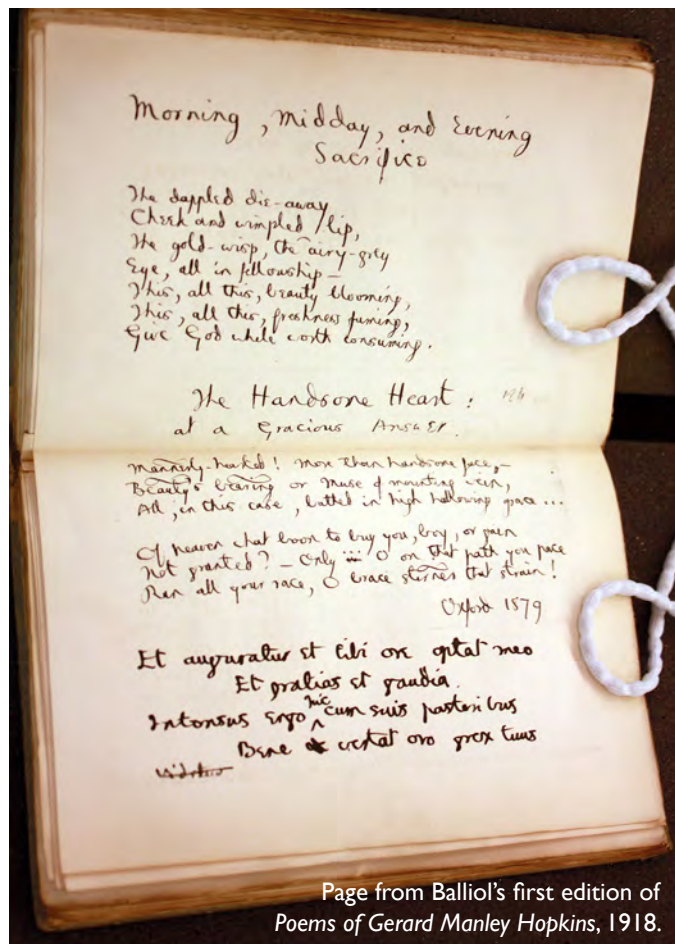 Morning, Midday, and Evening
Sacrifice
The dappled die-away
Cheek and wimpled lip,
The gold-wisp, the airy-grey
Eye, all in fellowship—
This, all this, beauty blooming,
This, all this, freshness fuming,
Give God while worth consuming.
The Handsome Heart:
at a Gracious Answer.
Mannerly-hearted! More than handsome face,—
Beauty's bearing or Muse of mounting vein,
All, in this case, bathed in high hallowing grace...
Of heaven what boon to buy you, boy, or gain
Not granted?— Only ... O on that path you pace
Run all your race, O brace sterner that strain!
Oxford 1879
Et auguratur et tibi ore optat meo
Et gratias et gaudia.
Intonsus ergo hic cum suis pastoribus
Bene vertat oro grex tuus
Page from Balliol's first edition of
Poems of Gerard Manley Hopkins, 1918.